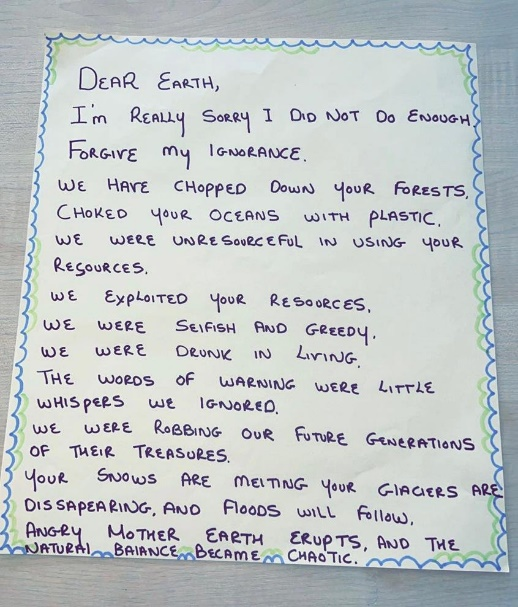 DEAR EARTH,
I'm REALLY SORRY I DID NOT DO ENOUGH,
FORGIVE my IGNORANCE.
WE HAVE CHOPPED DOWN YOUR FORESTS,
CHOKED YOUR OCEANS WITH PLASTIC.
WE WERE UNRESOURCEFUL IN USING YOUR
RESOURCES.
WE EXPLOITED YOUR RESOURCES.
WE WERE SElFISH AND GREEDY.
WE WERE DRUNK IN LIVING.
THE WORDS OF WARNING WERE LITTLE
WHISPERS WE IGNORED.
WE WERE ROBBING OUR FUTURE GENERATIONS
OF THEIR TREASURES.
YOUR SNOWS ARE MElTING YOUR GLACIERS ARE
DISSAPEARING, AND FlOODS WILL FOLLOW.
ANGRY MOTHER EARTH ERUPTS, AND THE
NATURAL BAlANCE BECAME CHAOTIC.